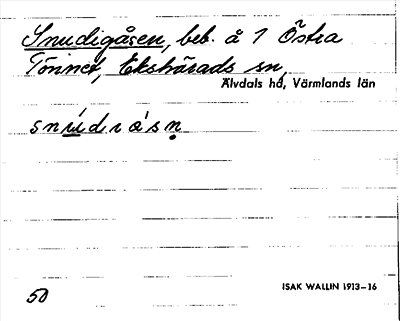 Snudigåsen, beb. å 1 Östra
Tönnet, Ekshärads sn,
Älvdals hd, Värmlands län
50
ISAK WALLIN 1913–16